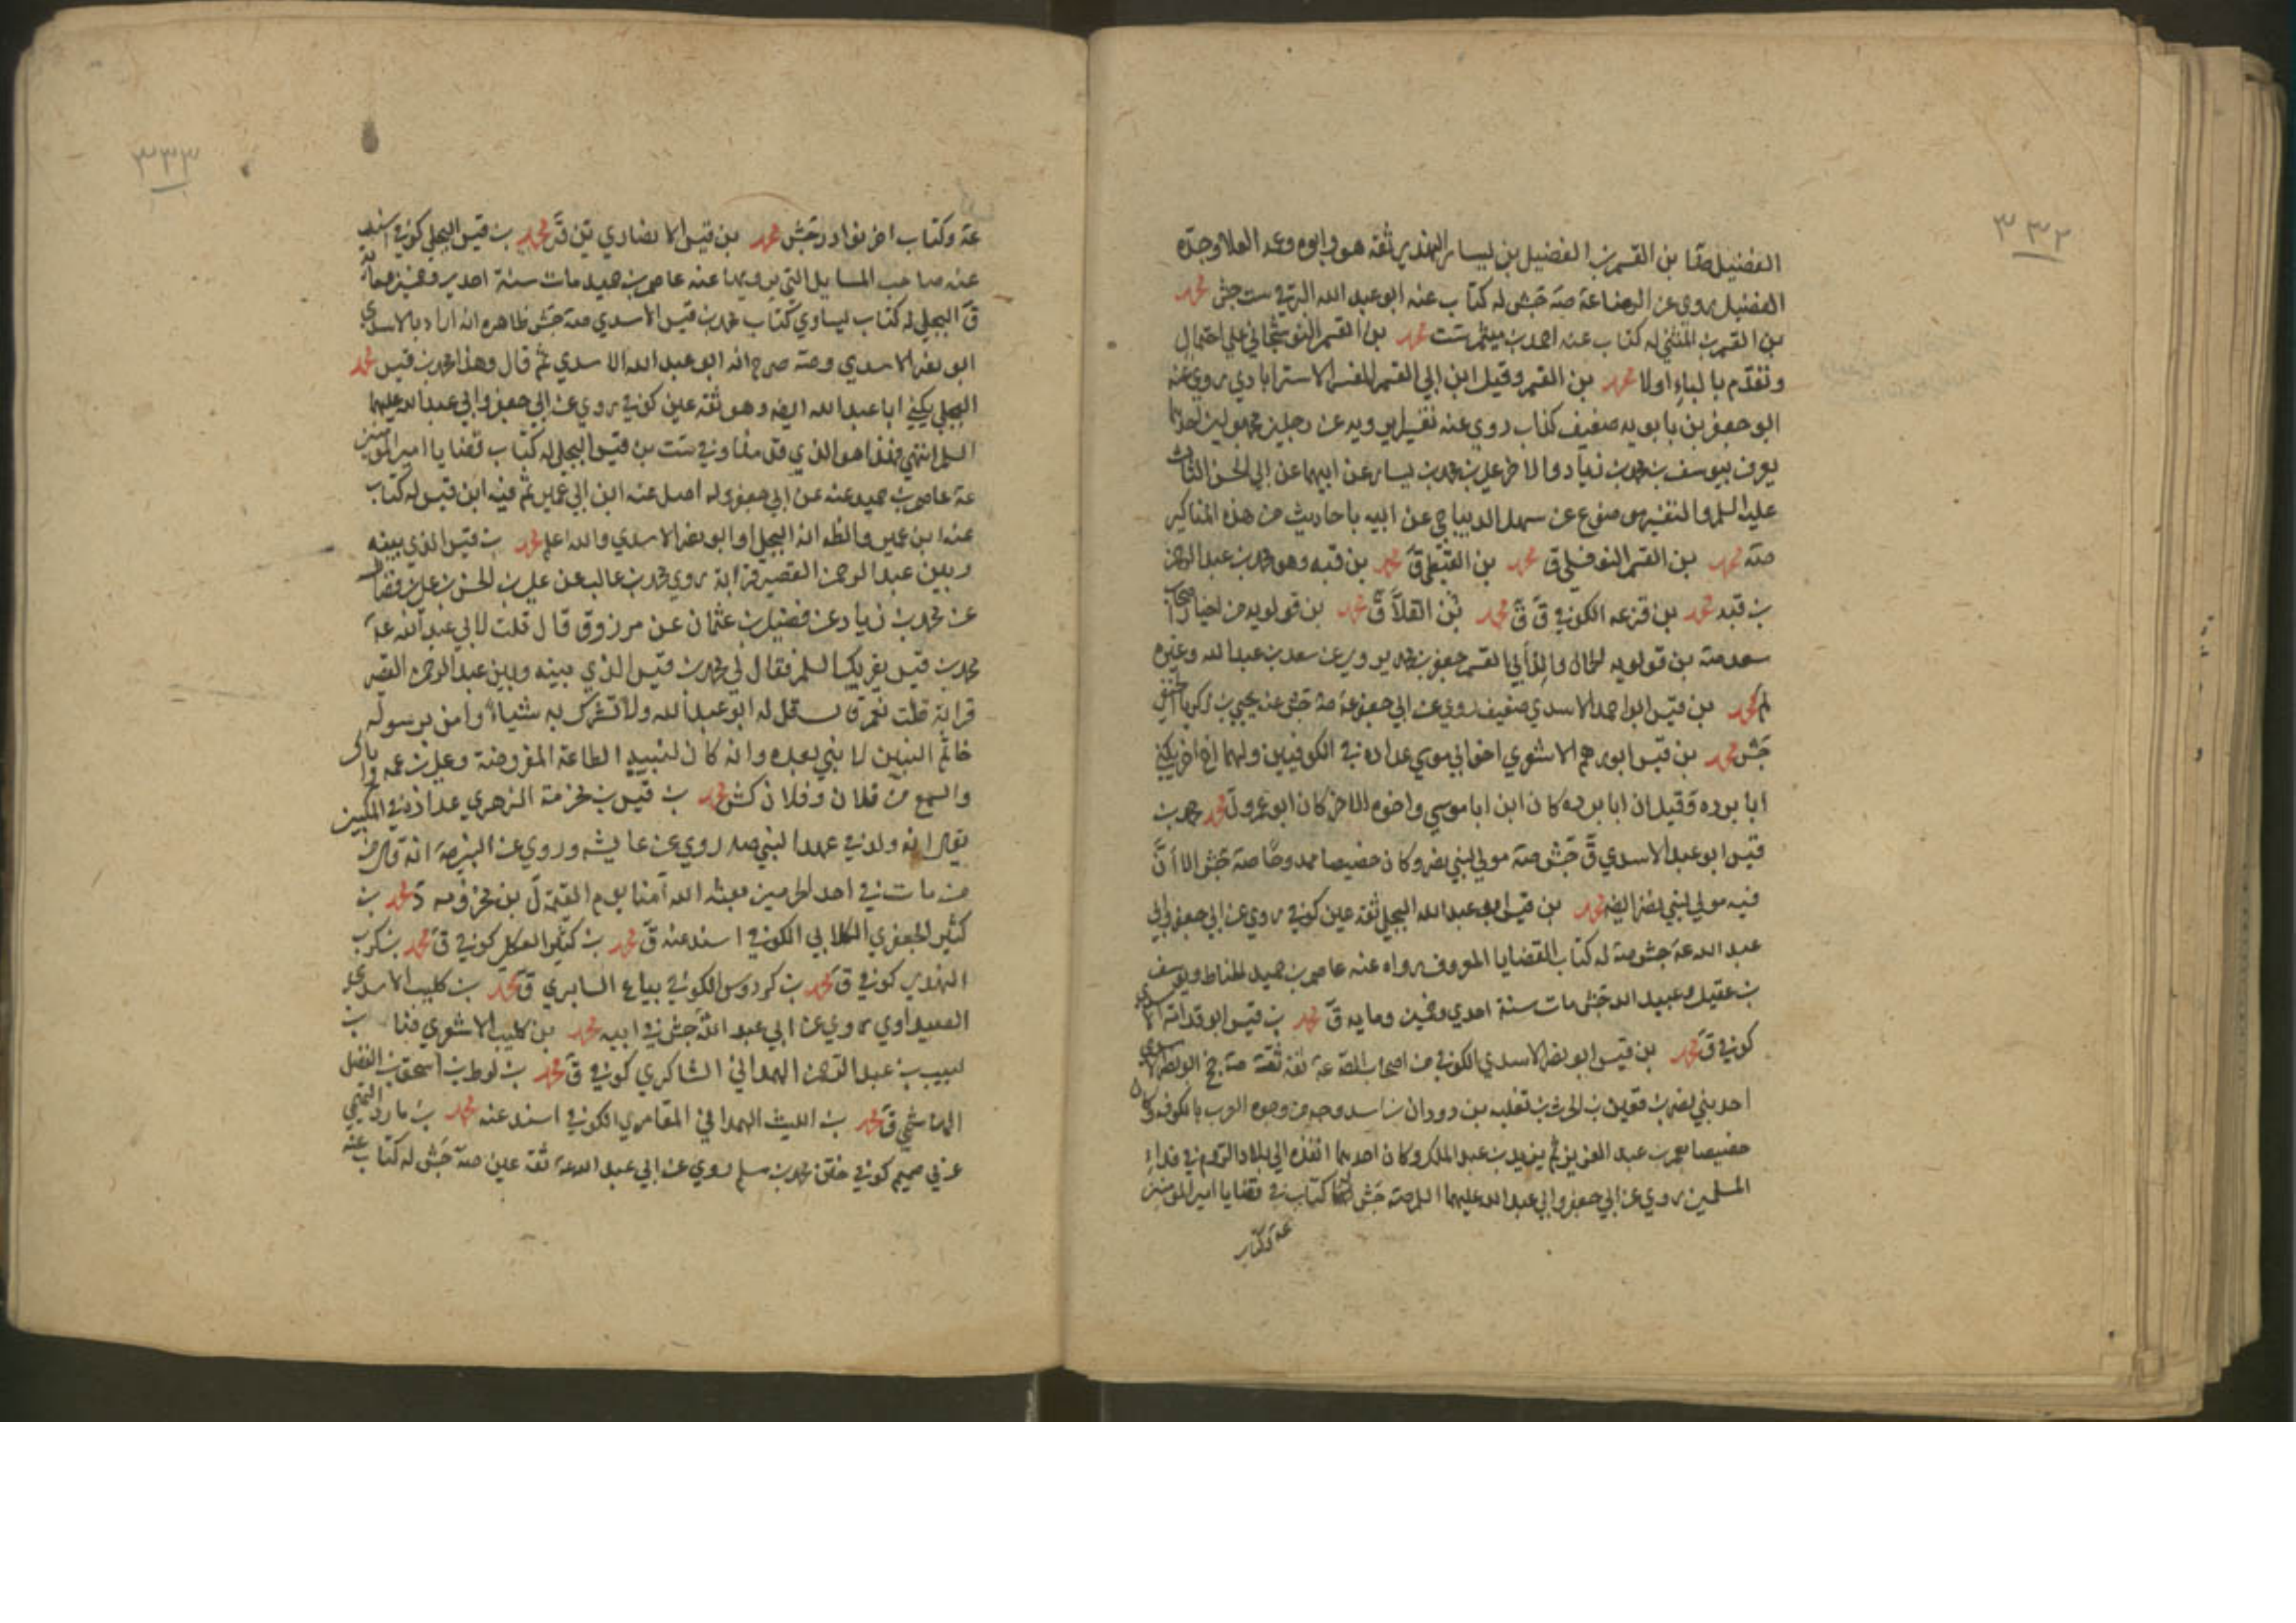 ٣٣٢
الفضيل صقا بن القسم بن الفضيل بن يسار النهدي ثقة هو وابوه وعمه العلا وجده
الفضيل روى عن الرضا عة صة جش له كتاب عنه ابو عبد الله البرقي ست جش محمد
بن القسم بن المثنى له كتاب عنه احمد بن ميثم ست محمد بن القسم النوشجاني على احتمال
وتقدم بالباء اولا محمد بن القسم وقيل ابن ابي القسم المفسر الاسترابادي روى عنه
ابو جعفر بن بابويه ضعيف كذاب روي عنه تفسيرا يرويه عن رجلين مجهولين احدهما
يعرف بيوسف بن محمد بن زياد والاخر علي بن محمد بن يسار عن ابيهما عن ابي الحسن الثالث
عليه السلم والتفسير موضوع عن سهل الديباجي عن ابيه باحاديث من هذه المناكير
صة محمد بن القسم النوفلي ق محمد بن القبطي ق محمد بن قبه وهو محمد بن عبد الرحمن
بن قبه محمد بن قزعه الكوفي ق ق محمد بن القلا ق محمد بن قولويه من اخيار اصحاب
سعد صة بن قولويه الجمال والد ابي القسم جعفر بن محمد يروي عن سعد بن عبد الله وغيره
لم محمد بن قيس ابو احمد الاسدي ضعيف روي عن ابي جعفر عة صة جش عنه يحيى بن زكريا الحنفي
جش محمد بن قيس ابو رهم الاشعري اخو ابي موسي عداده في الكوفيين ولهما اخ اخر يكنى
ابا برده وقيل ان ابا برده كان ابن ابا موسي واخوه الاخر كان ابو عمرو ل محمد محمد بن
قيس ابو عبد الاسدي ق جش صة مولي لبني نصر وكان خصيصا ممدوحا صة جش الا ان
فيه مولي لبني نصر ايضه محمد بن قيس ابو عبد الله البجلي ثقة عين كوفي روي عن ابي جعفر وابي
عبد الله عة جش صة له كتاب القضايا المعروف رواه عنه عاصم بن حميد الحناط ويوسف
بن عقيل وعبيد ابنه جش مات سنة احدي وخمسين ومايه ق محمد بن قيس ابو قدامه الاسدي
كوفي ق محمد بن قيس ابو نصر الاسدي الكوفي من اصحاب الصة عة ثقة ثقة صة جخ ابو نصر الاسدي
احد بني نصر بن قعين بن الحرث بن ثعلبه بن دودان بن اسد وجه من وجوه العرب بالكوفه وكان
خصيصا بعمر بن عبد العزيز ثم يزيد بن عبد الملك وكان احدهما انفذه الى بلاد الروم في فداء
المسلمين روي عن ابي جعفر وابي عبد الله عليهما السلم صة جش له كتاب في قضايا امير المومنين
عة وكتاب
٣٣٣
عة وكتاب اخر نوادر جش محمد بن قيس الانصاري ين ق محمد بن قيس البجلي كوفي اسند
عنه صاحب المسايل التي يرويها عنه عاصم بن حميد مات سنة احدي وخمسين ومايه
ق البجلي له كتاب يساوي كتاب محمد بن قيس الاسدي صة جش ظاهره انه اراد بالاسدي
ابو نصر الاسدي وصة صرح انه ابو عبد الله الاسدي ثم قال وهذا محمد بن قيس محمد
البجلي يكنى ابا عبد الله ايضه وهو ثقة عين كوفي روي عن ابي جعفر وابي عبد الله عليهما
السلم انتهي فهذا هو الذي قدمناه وفي ست بن قيس البجلي له كتاب قضايا امير المومنين
عة عاصم بن حميد عنه عن ابي جعفر وله اصل عنه ابن ابي عمير ثم فيه ابن قيس له كتاب
عنه ابن عمير والظ انه البجلي او ابو نصر الاسدي والله اعلم محمد بن قيس الذي بينه
وبين عبد الرحمن القصير قرابة روي محمد بن غالب عن علي بن الحسن بن علي بن فضال
عن محمد بن زياد عن فضيل بن عثمان عن مرزوق قال قلت لابي عبد الله عة
محمد بن قيس يقريك السلم فقال لي محمد بن قيس الذي بينه وبين عبد الرحمن القصير
قرابة قلت نعم قال قل له ابو عبد الله ولا تشرك به شيئا وامن برسوله
خاتم النبيين لا نبي بعده وانه كان لنبيه الطاعة المفروضة وعلي بن عمه واياك
والسمع من فلان وفلان كش محمد بن قيس بن مخرمة الزهري عداده في المكيين
يقال انه ولد في عهد النبي صه روي عن عايشه وروي عن النبي صة انه قال من
من مات في احد الحرمين بعثه الله آمنا يوم القيمة ل بن مخرومه د محمد بن
كثير الجعفري الكلابي الكوفي اسند عنه ق محمد بن كثير العكلي كوفي ق محمد بن كرب
النهدي كوفي ق محمد بن كردوس الكوفي بياع السابري ق محمد بن كليب الاسدي
الصيداوي روي عن ابي عبد الله جش في ابيه محمد بن كليب الاشعري بن
لبيب بن عبد الرحمن الهمداني الشاكري كوفي ق محمد بن لوط بن اسحق بن الفضل
الهاشمي ق محمد بن الليث الهمداني المقامري الكوفي اسند عنه محمد بن مارد التميمي
عربي صميم كوفي ختن محمد بن مسلم روي عن ابي عبد الله عة ثقة عين صة جش له كتاب عنه